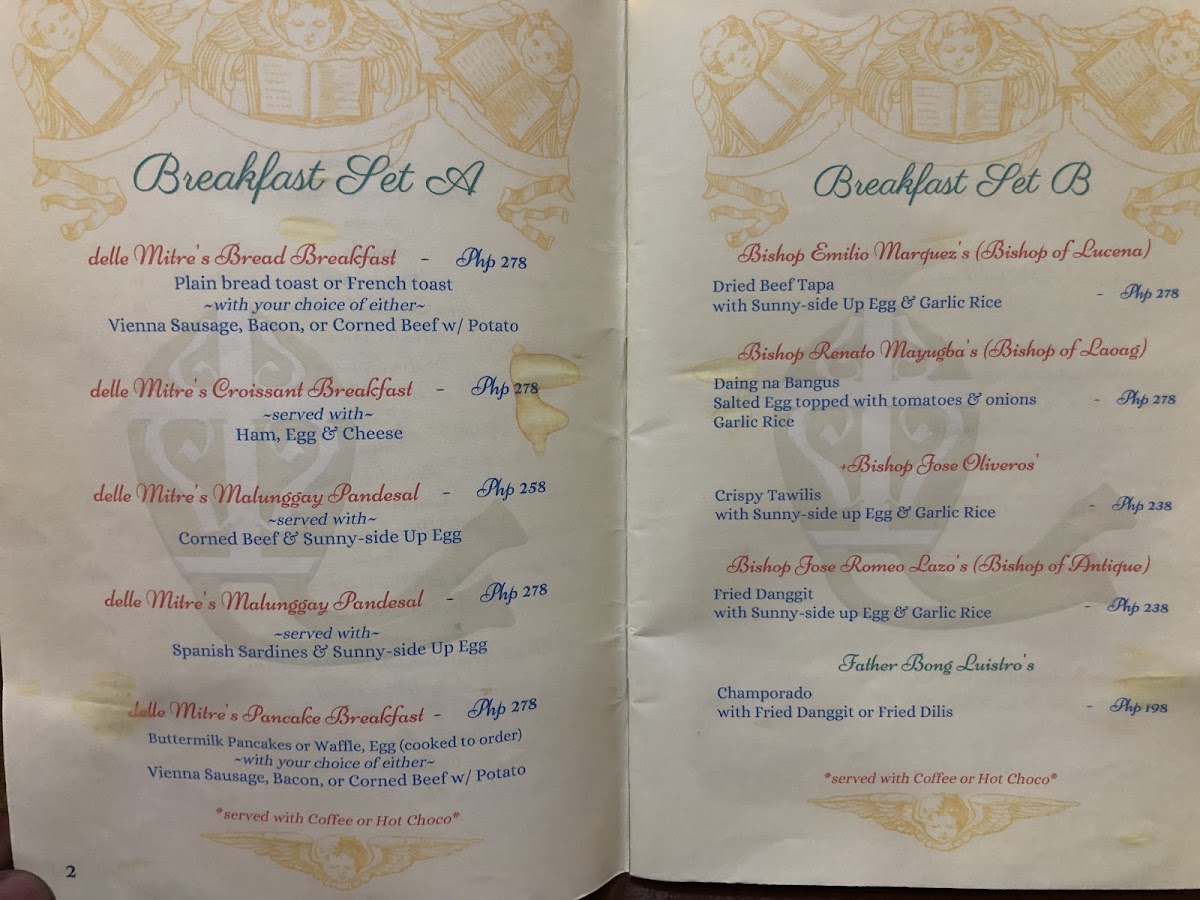 Breakfast Set A
delle Mitre's Bread Breakfast - Php 278
Plain bread toast or French toast
~with your choice of either~
Vienna Sausage, Bacon, or Corned Beef w/ Potato
delle Mitre's Croissant Breakfast - Php 278
~served with~
Ham, Egg & Cheese
delle Mitre's Malunggay Pandesal - Php 258
~served with~
Corned Beef & Sunny-side Up Egg
delle Mitre's Malunggay Pandesal - Php 278
~served with~
Spanish Sardines & Sunny-side Up Egg
delle Mitre's Pancake Breakfast - Php 278
Buttermilk Pancakes or Waffle, Egg (cooked to order)
~with your choice of either~
Vienna Sausage, Bacon, or Corned Beef w/ Potato
*served with Coffee or Hot Choco*
2
Breakfast Set B
Bishop Emilio Marquez's (Bishop of Lucena)
Dried Beef Tapa
with Sunny-side Up Egg & Garlic Rice - Php 278
Bishop Renato Mayugba's (Bishop of Laoag)
Daing na Bangus
Salted Egg topped with tomatoes & onions - Php 278
Garlic Rice
+Bishop Jose Oliveros'
Crispy Tawilis
with Sunny-side up Egg & Garlic Rice - Php 238
Bishop Jose Romeo Lazo's (Bishop of Antique)
Fried Danggit
with Sunny-side up Egg & Garlic Rice - Php 238
Father Bong Luistro's
Champorado
with Fried Danggit or Fried Dilis - Php 198
*served with Coffee or Hot Choco*